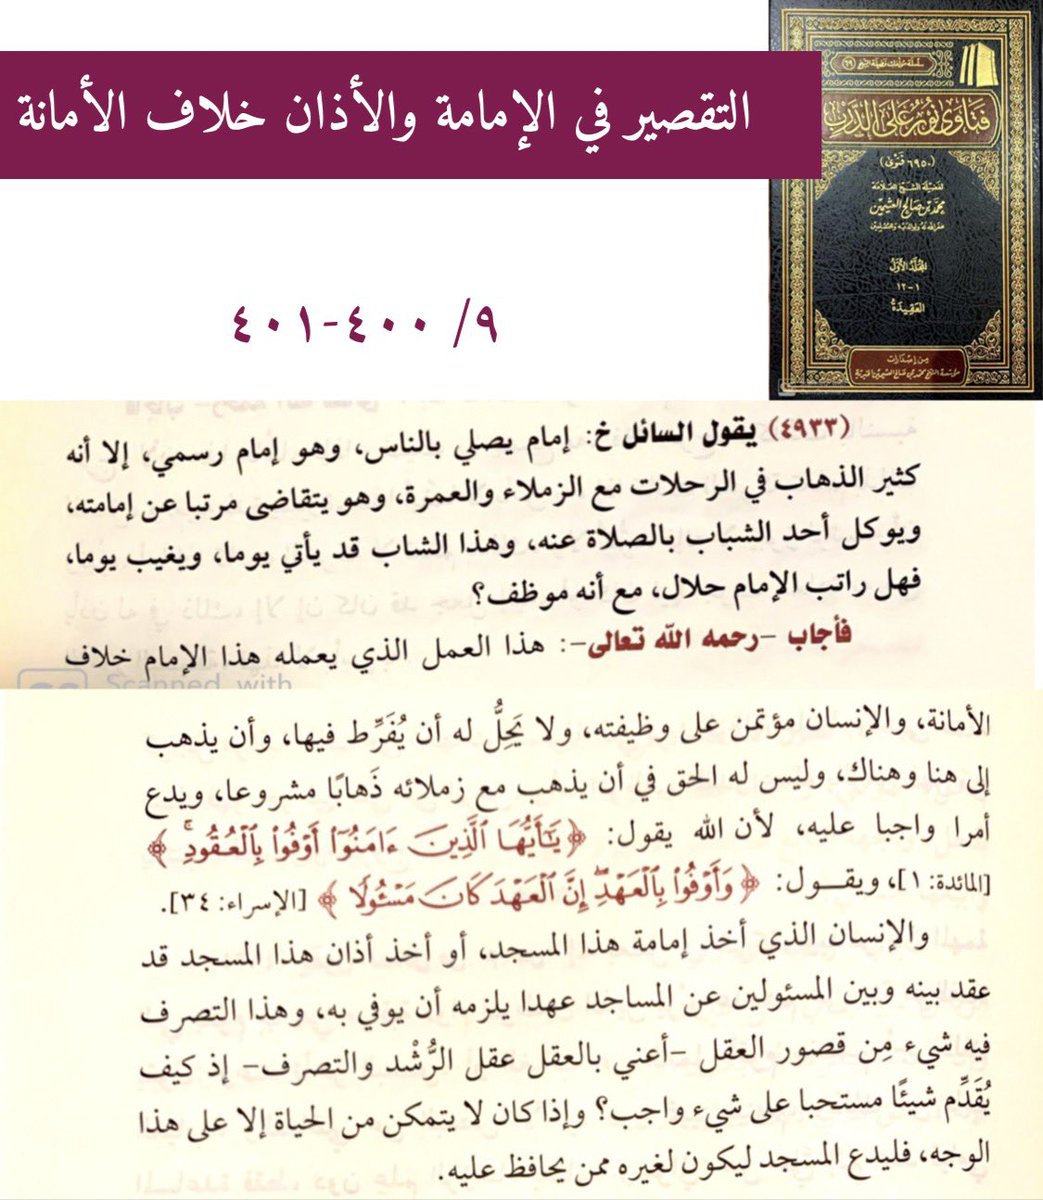 التقصير في الإمامة والأذان خلاف الأمانة
سلسلة مؤلفات فضيلة الشيخ (٦٩)
فتاوى نور على الدرب
(٦٩٥٠ فتوى)
لفضيلة الشيخ العلامة
محمد بن صالح العثيمين
غفر الله له ولوالديه وللمسلمين
المجلد الأول
١-١٢
العقيدة
من إصدارات
مؤسسة الشيخ محمد بن صالح العثيمين الخيرية
٩/ ٤٠٠-٤٠١
(٤٩٣٣) يقول السائل خ: إمام يصلي بالناس، وهو إمام رسمي، إلا أنه
كثير الذهاب في الرحلات مع الزملاء والعمرة، وهو يتقاضى مرتبا عن إمامته،
ويوكل أحد الشباب بالصلاة عنه، وهذا الشاب قد يأتي يوما، ويغيب يوما،
فهل راتب الإمام حلال، مع أنه موظف؟
فأجاب –رحمه الله تعالى–: هذا العمل الذي يعمله هذا الإمام خلاف
Scanned with
الأمانة، والإنسان مؤتمن على وظيفته، ولا يَحِلُّ له أن يُفَرِّط فيها، وأن يذهب
إلى هنا وهناك، وليس له الحق في أن يذهب مع زملائه ذَهابًا مشروعا، ويدع
أمرا واجبا عليه، لأن الله يقول: ﴿يَٰٓأَيُّهَا ٱلَّذِينَ ءَامَنُوٓا۟ أَوْفُوا۟ بِٱلْعُقُودِ ۚ﴾
[المائدة: ١]، ويقـــول: ﴿وَأَوْفُوا۟ بِٱلْعَهْدِ ۖ إِنَّ ٱلْعَهْدَ كَانَ مَسْـُٔولًا﴾ [الإسراء: ٣٤].
والإنسان الذي أخذ إمامة هذا المسجد، أو أخذ أذان هذا المسجد قد
عقد بينه وبين المسئولين عن المساجد عهدا يلزمه أن يوفي به، وهذا التصرف
فيه شيء مِن قصور العقل –أعني بالعقل عقل الرُّشْد والتصرف– إذ كيف
يُقَدِّم شيئًا مستحبا على شيء واجب؟ وإذا كان لا يتمكن من الحياة إلا على هذا
الوجه، فليدع المسجد ليكون لغيره ممن يحافظ عليه.